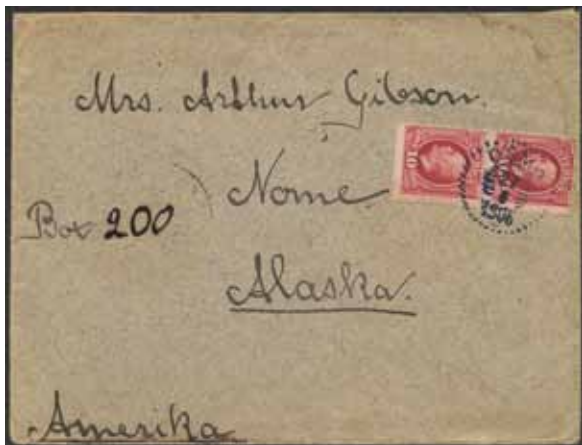 Mrs. Arthur Gibson.
Nome
Box 200
Alaska.
Amerika
10